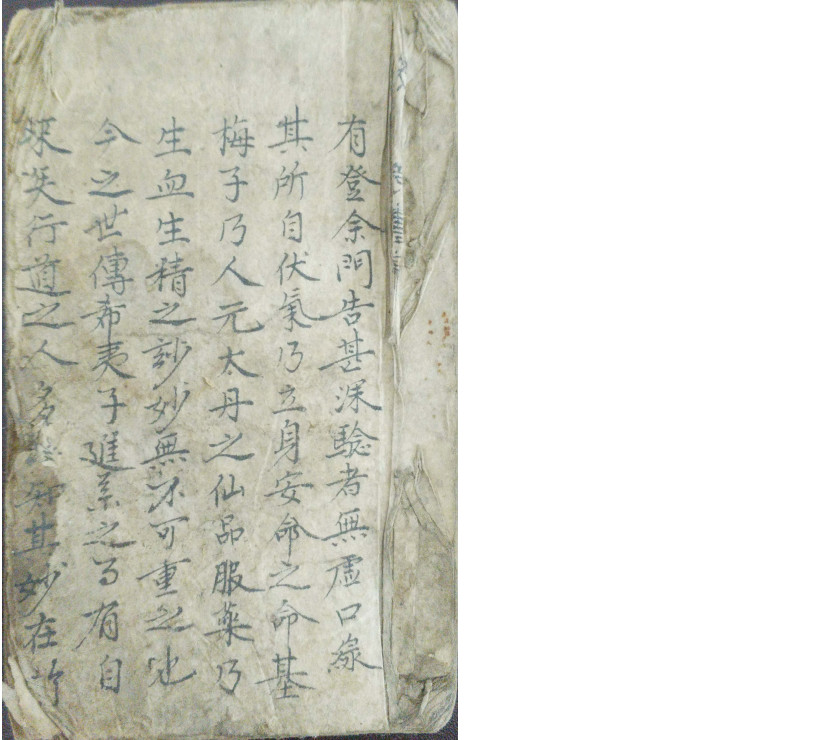 有登余門告甚深驗者無虛口緣
其所自伏氣乃立身安命之命基
梅子乃人元太丹之仙品服藥乃
生血生精之訬妙無不可重之也
今之世傳希夷子進系之有自
採英行道之人多知其妙在